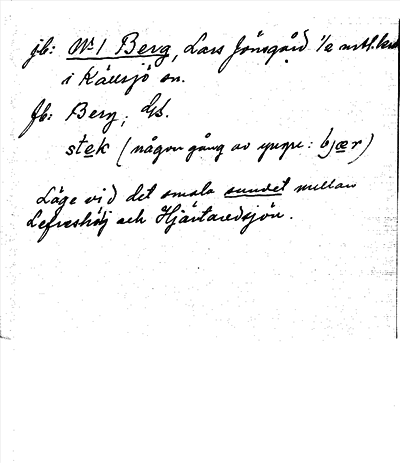 jb: No 1 Berg, Lars Jönsgård 1/2 mtl.
i Källsjö sn.
fb: Berg, ds.
stek (någon gång av yngre: bjær)
Läge vid det smala sundet mellan
och Hjärtaredsjön.